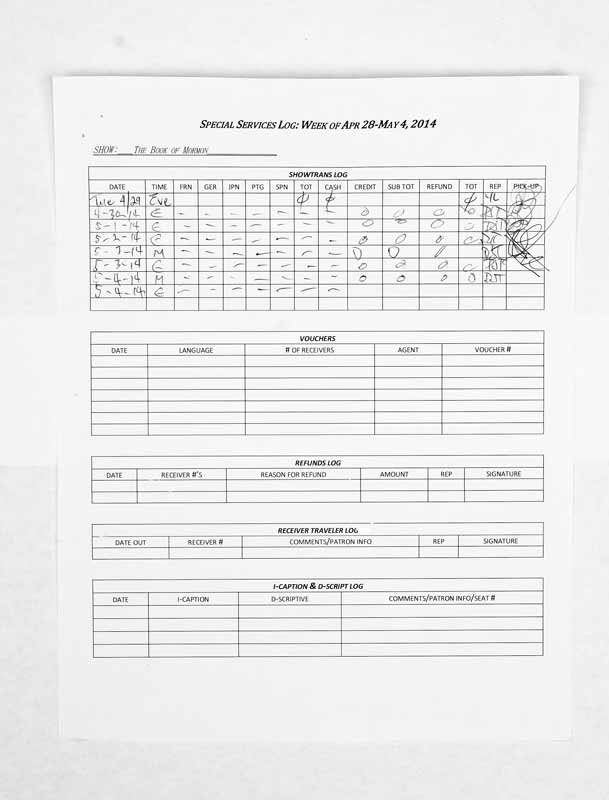 SPECIAL SERVICES LOG: WEEK OF APR 28-MAY 4, 2014
SHOW: THE BOOK OF MORMON
SHOWTRANS LOG
DATE TIME FRN GER JPN PTG SPN TOT CASH CREDIT SUB TOT REFUND TOT REP PICK-UP
Tue 4/29 Eve ϕ ϕ ϕ YL
4-30-14 E - - - - - - - 0 0 0 0 DST
5-1-14 E - - - - - - - 0 0 0 0 DST
5-2-14 E - - - - - - - 0 0 0 0 DST
5-3-14 M - - - - - - - 0 0 0 0 DST
5-3-14 E - - - - - - - 0 0 0 0 DST
5-4-14 M - - - - - - - 0 0 0 0 DST
5-4-14 E - - - - - - -
VOUCHERS
DATE LANGUAGE # OF RECEIVERS AGENT VOUCHER #
REFUNDS LOG
DATE RECEIVER #'S REASON FOR REFUND AMOUNT REP SIGNATURE
RECEIVER TRAVELER LOG
DATE OUT RECEIVER # COMMENTS/PATRON INFO REP SIGNATURE
I-CAPTION & D-SCRIPT LOG
DATE I-CAPTION D-SCRIPTIVE COMMENTS/PATRON INFO/SEAT #